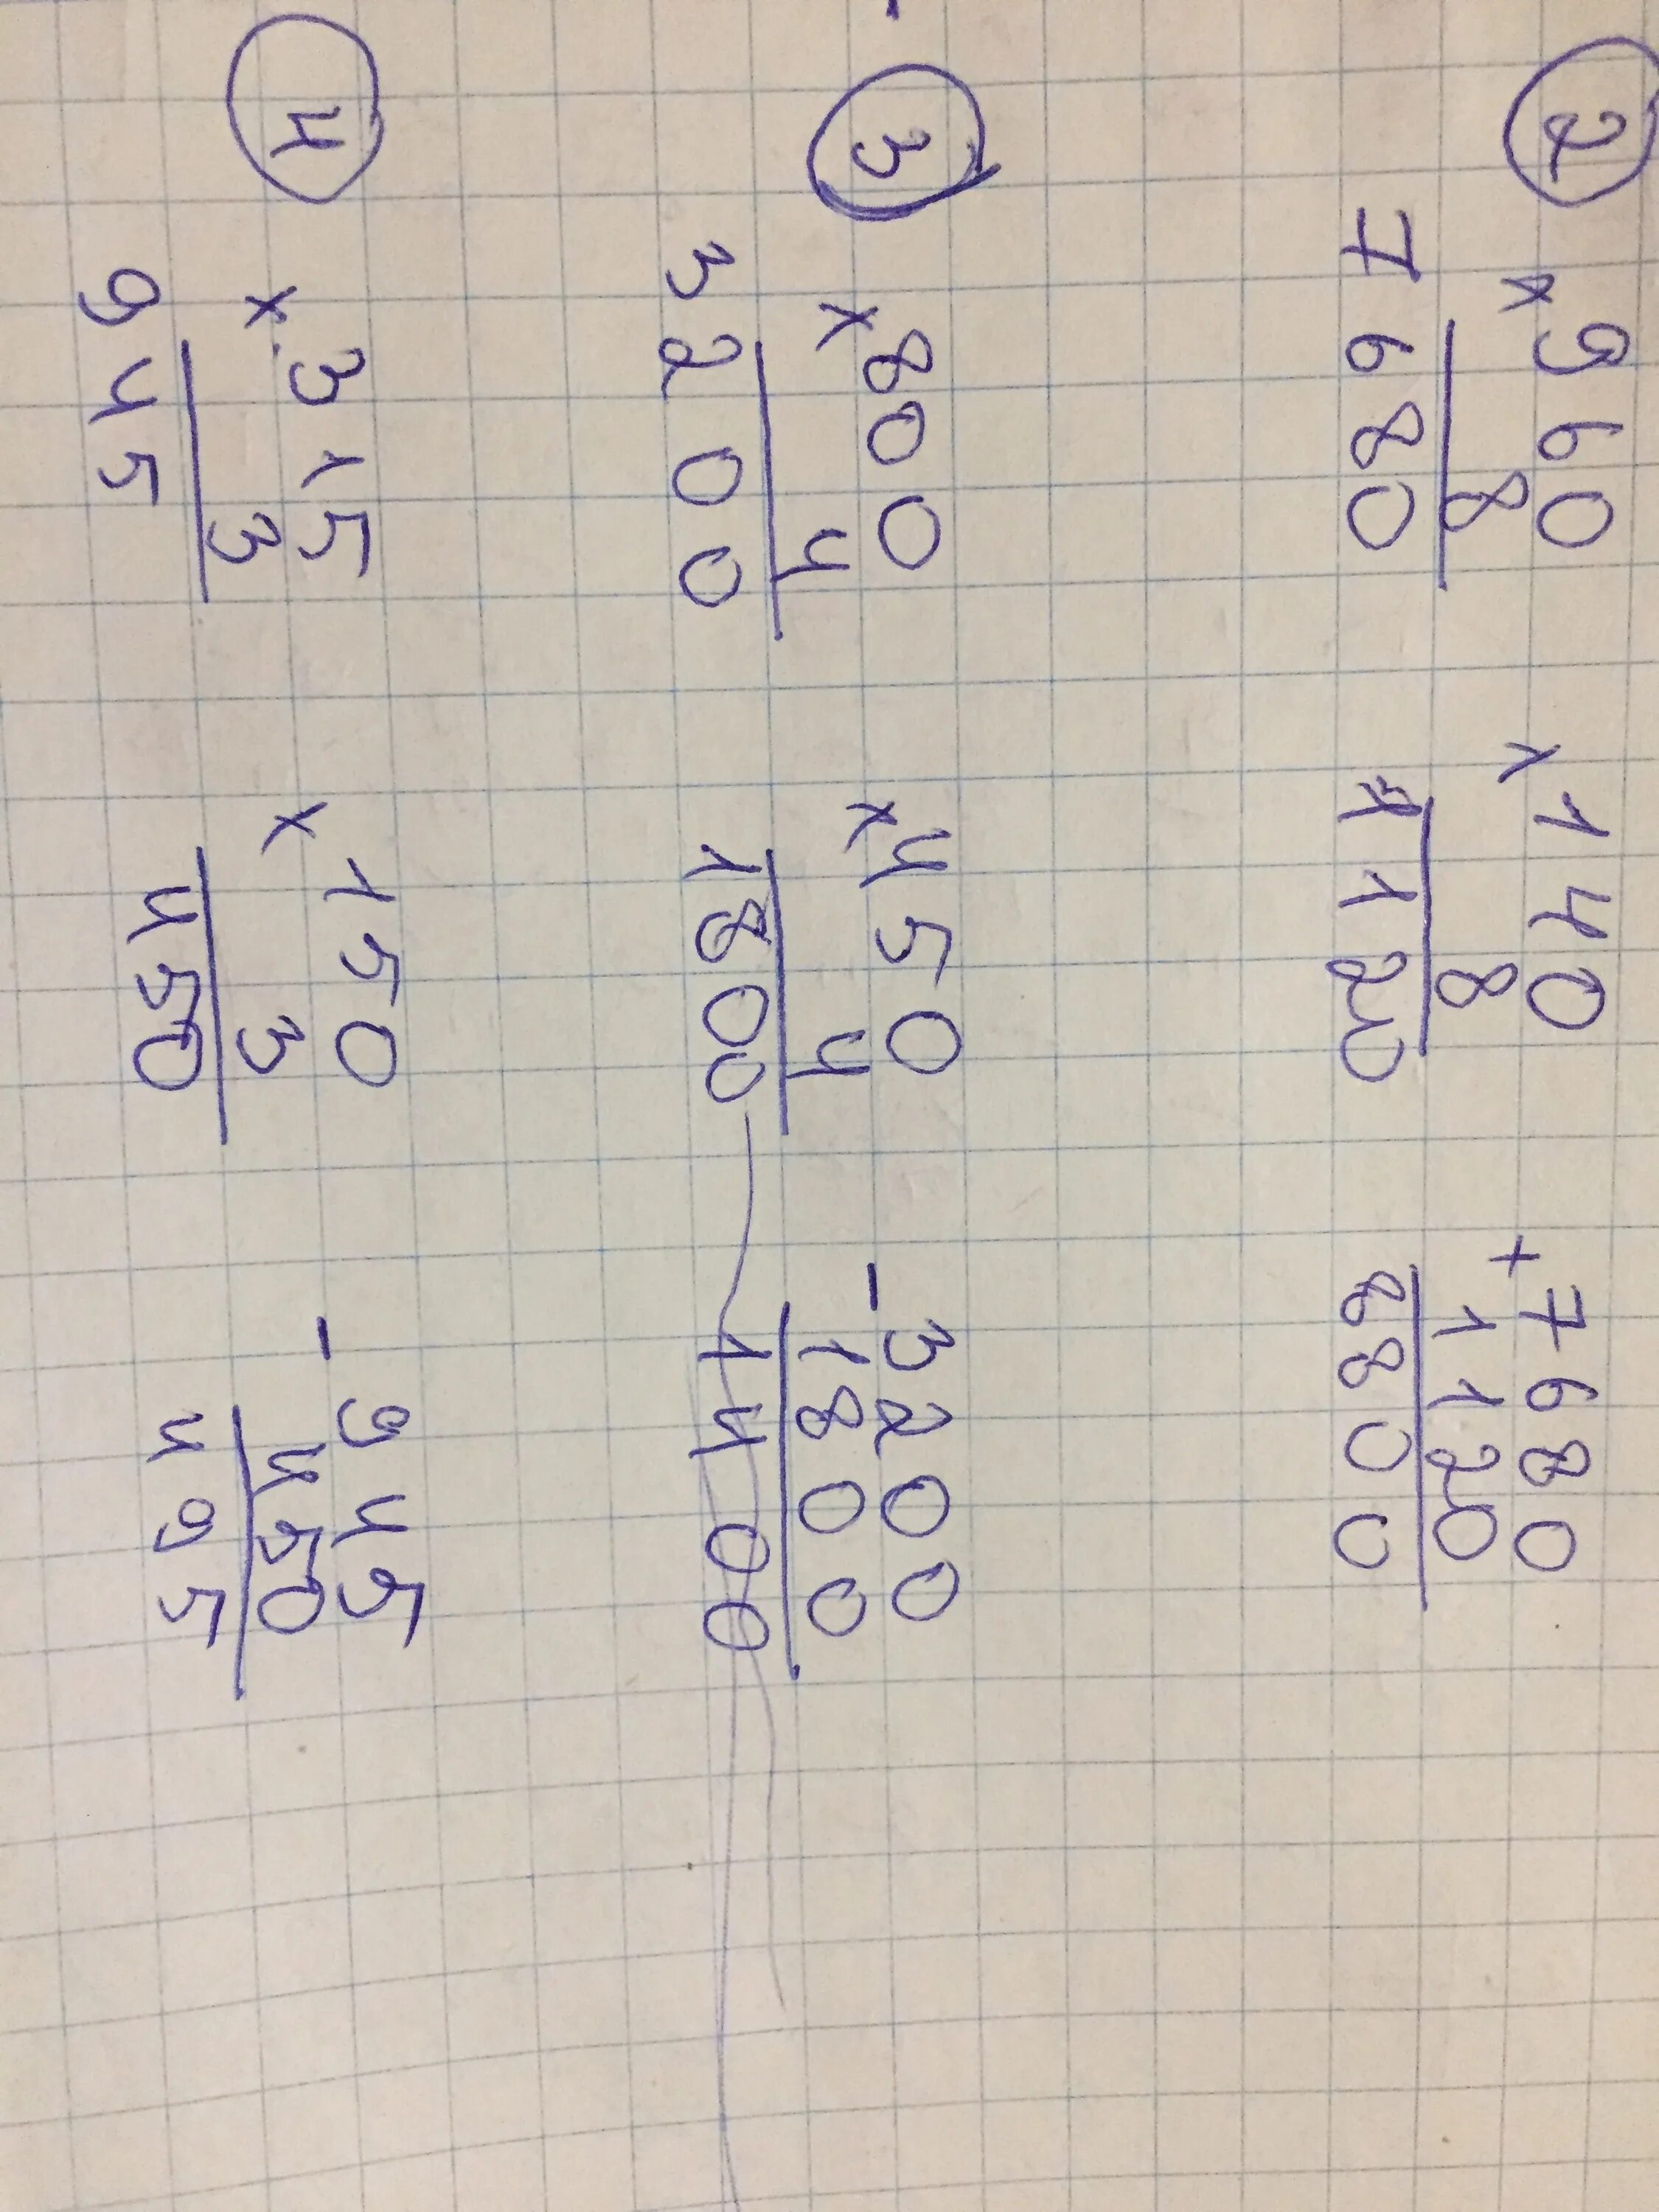 2
× 960 × 140 + 7680
8 8 1120
7680 1120 8800
3
× 800 × 450 - 3200
4 4 1800
3200 1800 1400
4
× 315 × 150 - 945
3 3 450
945 450 495